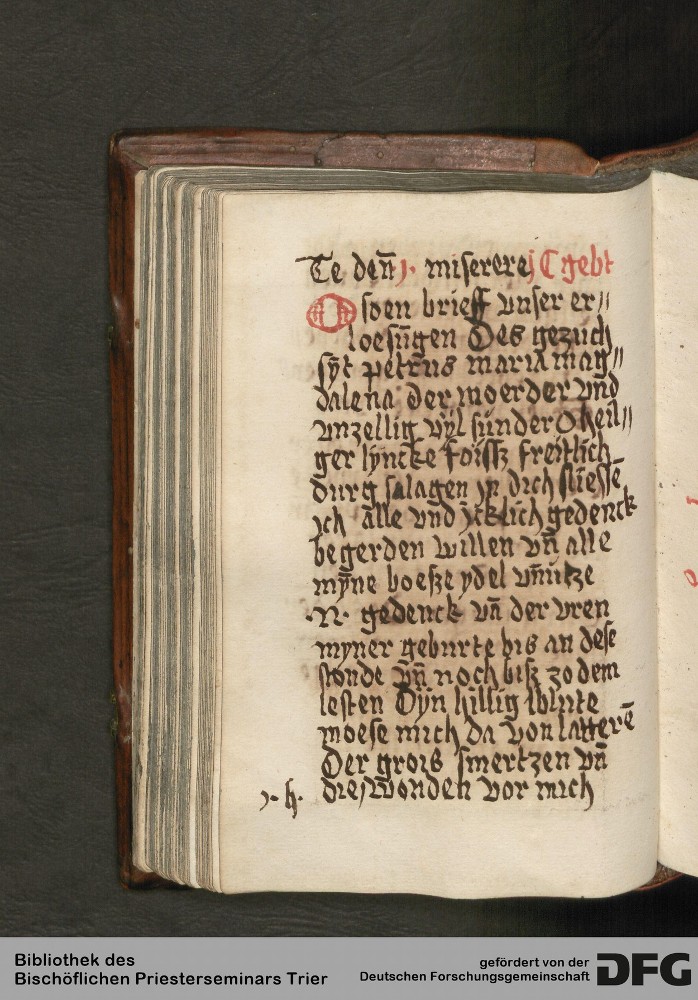 Te den̄ j· miserere j C gebt
O soen brieff vnser er//
loesūgen Des gezuch
sȳt petrus maria mag//
dalena der moerder vnd
vnzellig vyl sunder O heil//
ger lyncke foissz freitlich
durg salagen yn dich sliesse
ych alle vnd ycklich gedenck
begerden willen vn̄ alle
myne boesze ydel vn̄utze
·N· gedenck vā der vren
myner geburte bis an dese
stonde vn̄ noch bisz zo dem
lesten Dyn hillig blute
moese mich da von latterē
Der grois smertzen vn̄
j· h. die wonden vor mich
Bibliothek des
Bischöflichen Priesterseminars Trier
gefördert von der
Deutschen Forschungsgemeinschaft
DFG